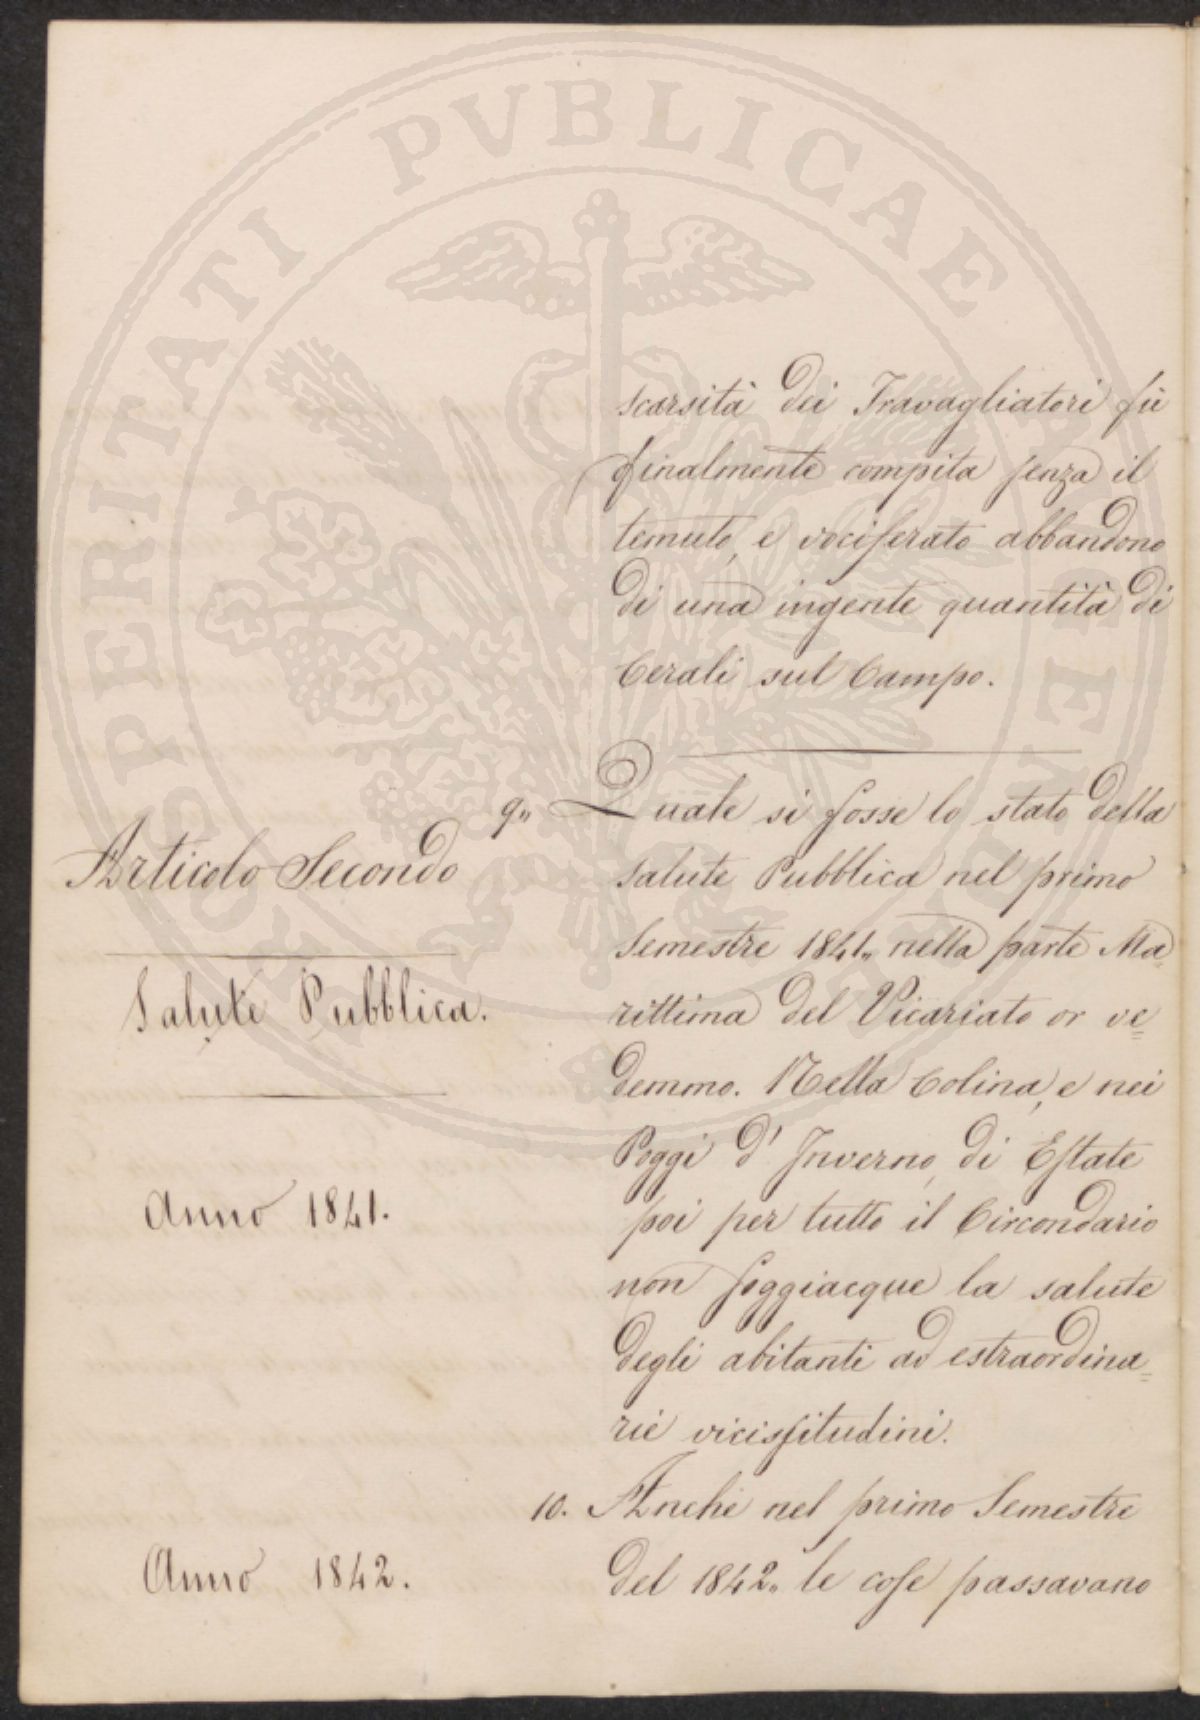 scarsità dei Travagliatori fù
finalmente compita senza il
temuto, e vociferato abbandono
di una ingente quantità di
Cerali sul Campo.
9,, Quale si fosse lo stato della
Articolo Secondo
salute Pubblica nel primo
Semestre 1841,, nella parte Ma=
Salute Pubblica.
rittima del Vicariato or ve=
demmo. Nella Colina, e nei
Poggi d' Inverno, di Estate
Anno 1841.
poi per tutto il Circondario
non soggiacque la salute
degli abitanti ad estraordina=
rie vicissitudini.
10. Anche nel primo Semestre
Anno 1842.
del 1842,, le cose passavano
PROSPERITATI PVBLICAE AVGENDAE